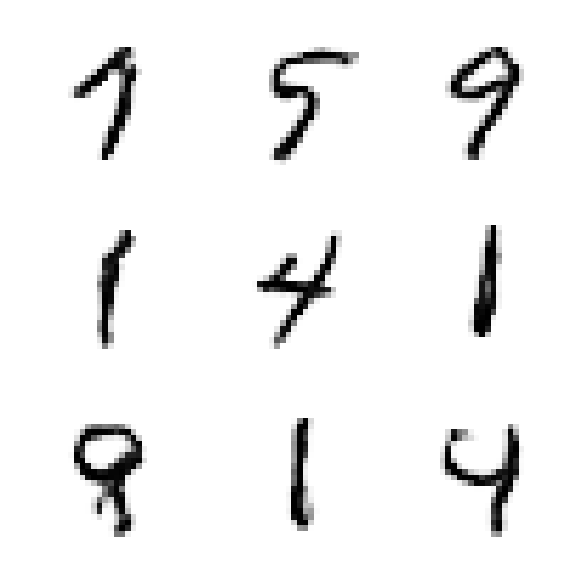 7 5 9
1 4 1
8 1 4